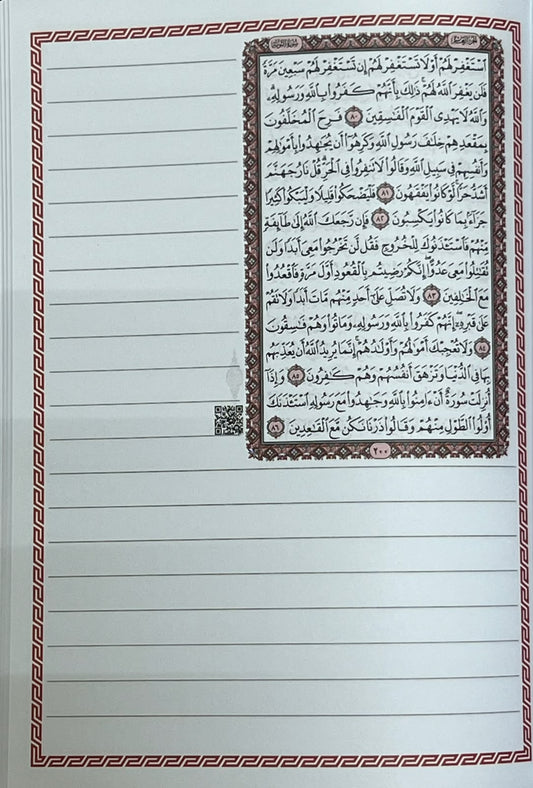 الجزء العاشر
سورة التوبة
ٱسْتَغْفِرْ لَهُمْ أَوْ لَا تَسْتَغْفِرْ لَهُمْ إِن تَسْتَغْفِرْ لَهُمْ سَبْعِينَ مَرَّةً
فَلَن يَغْفِرَ ٱللَّهُ لَهُمْ ۚ ذَٰلِكَ بِأَنَّهُمْ كَفَرُوا۟ بِٱللَّهِ وَرَسُولِهِۦ ۗ
وَٱللَّهُ لَا يَهْدِى ٱلْقَوْمَ ٱلْفَٰسِقِينَ ٨٠ فَرِحَ ٱلْمُخَلَّفُونَ
بِمَقْعَدِهِمْ خِلَٰفَ رَسُولِ ٱللَّهِ وَكَرِهُوٓا۟ أَن يُجَٰهِدُوا۟ بِأَمْوَٰلِهِمْ
وَأَنفُسِهِمْ فِى سَبِيلِ ٱللَّهِ وَقَالُوا۟ لَا تَنفِرُوا۟ فِى ٱلْحَرِّ ۗ قُلْ نَارُ جَهَنَّمَ
أَشَدُّ حَرًّا ۚ لَّوْ كَانُوا۟ يَفْقَهُونَ ٨١ فَلْيَضْحَكُوا۟ قَلِيلًا وَلْيَبْكُوا۟ كَثِيرًا
جَزَآءًۢ بِمَا كَانُوا۟ يَكْسِبُونَ ٨٢ فَإِن رَّجَعَكَ ٱللَّهُ إِلَىٰ طَآئِفَةٍ
مِّنْهُمْ فَٱسْتَـْٔذَنُوكَ لِلْخُرُوجِ فَقُل لَّن تَخْرُجُوا۟ مَعِىَ أَبَدًا وَلَن
تُقَٰتِلُوا۟ مَعِىَ عَدُوًّا ۖ إِنَّكُمْ رَضِيتُم بِٱلْقُعُودِ أَوَّلَ مَرَّةٍ فَٱقْعُدُوا۟
مَعَ ٱلْخَٰلِفِينَ ٨٣ وَلَا تُصَلِّ عَلَىٰٓ أَحَدٍ مِّنْهُم مَّاتَ أَبَدًا وَلَا تَقُمْ
عَلَىٰ قَبْرِهِۦٓ ۖ إِنَّهُمْ كَفَرُوا۟ بِٱللَّهِ وَرَسُولِهِۦ وَمَاتُوا۟ وَهُمْ فَٰسِقُونَ
٨٤ وَلَا تُعْجِبْكَ أَمْوَٰلُهُمْ وَأَوْلَٰدُهُمْ ۚ إِنَّمَا يُرِيدُ ٱللَّهُ أَن يُعَذِّبَهُم
بِهَا فِى ٱلدُّنْيَا وَتَزْهَقَ أَنفُسُهُمْ وَهُمْ كَٰفِرُونَ ٨٥ وَإِذَآ
أُنزِلَتْ سُورَةٌ أَنْ ءَامِنُوا۟ بِٱللَّهِ وَجَٰهِدُوا۟ مَعَ رَسُولِهِ ٱسْتَـْٔذَنَكَ
أُو۟لُوا۟ ٱلطَّوْلِ مِنْهُمْ وَقَالُوا۟ ذَرْنَا نَكُن مَّعَ ٱلْقَٰعِدِينَ ٨٦
٢٠٠